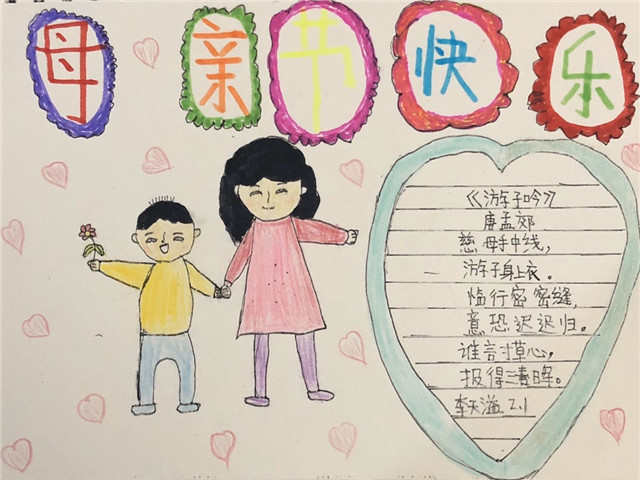 母亲节快乐
《游子吟》
唐孟郊
慈母手中线,
游子身上衣。
临行密密缝,
意恐迟迟归。
谁言寸草心,
报得三春晖。
李天溢 2.1